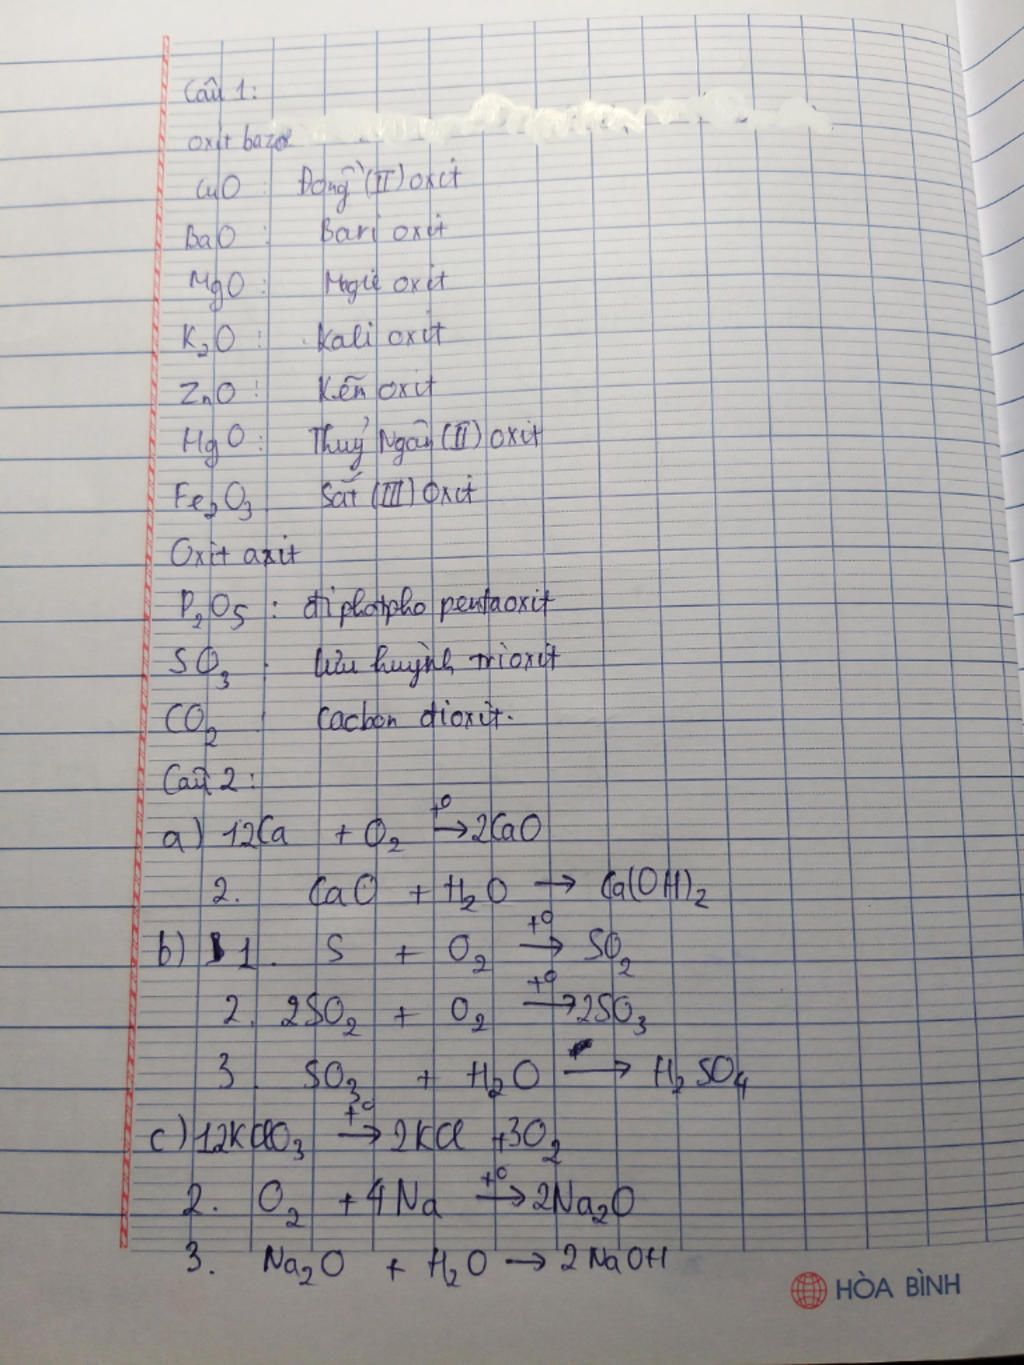 Câu 1:
oxit bazơ
CuO : Đồng (II) oxit
BaO : Bari oxit
MgO : Magiê oxit
K₂O : kali oxit
ZnO : Kẽm oxit
HgO : Thuỷ Ngân (II) oxit
Fe₂O₃ Sắt (III) Oxit
Oxit axit
P₂O₅ : điphotpho pentaoxit
SO₃ : lưu huỳnh trioxit
CO₂ : Cacbon đioxit.
Câu 2:
a) 1 2Ca + O₂ t⁰→ 2CaO
2. CaO + H₂O → Ca(OH)₂
b) 1. S + O₂ t⁰→ SO₂
2. 2SO₂ + O₂ t⁰→ 2SO₃
3 SO₃ + H₂O → H₂SO₄
c) 1 2KClO₃ t⁰→ 2KCl + 3O₂
2. O₂ + 4Na t⁰→ 2Na₂O
3. Na₂O + H₂O → 2NaOH
HÒA BÌNH